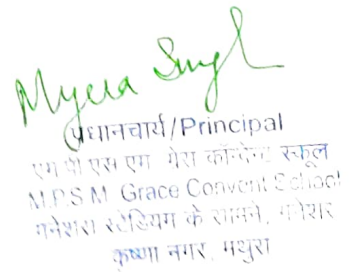 Myera Singh
प्रधानचार्य/Principal
एम पी एस एम ग्रेस कॉन्वेन्ट स्कूल
M.P.S.M. Grace Convent School
गनेशरा स्टेडियम के सामने, गनेशरा
कृष्णा नगर, मथुरा